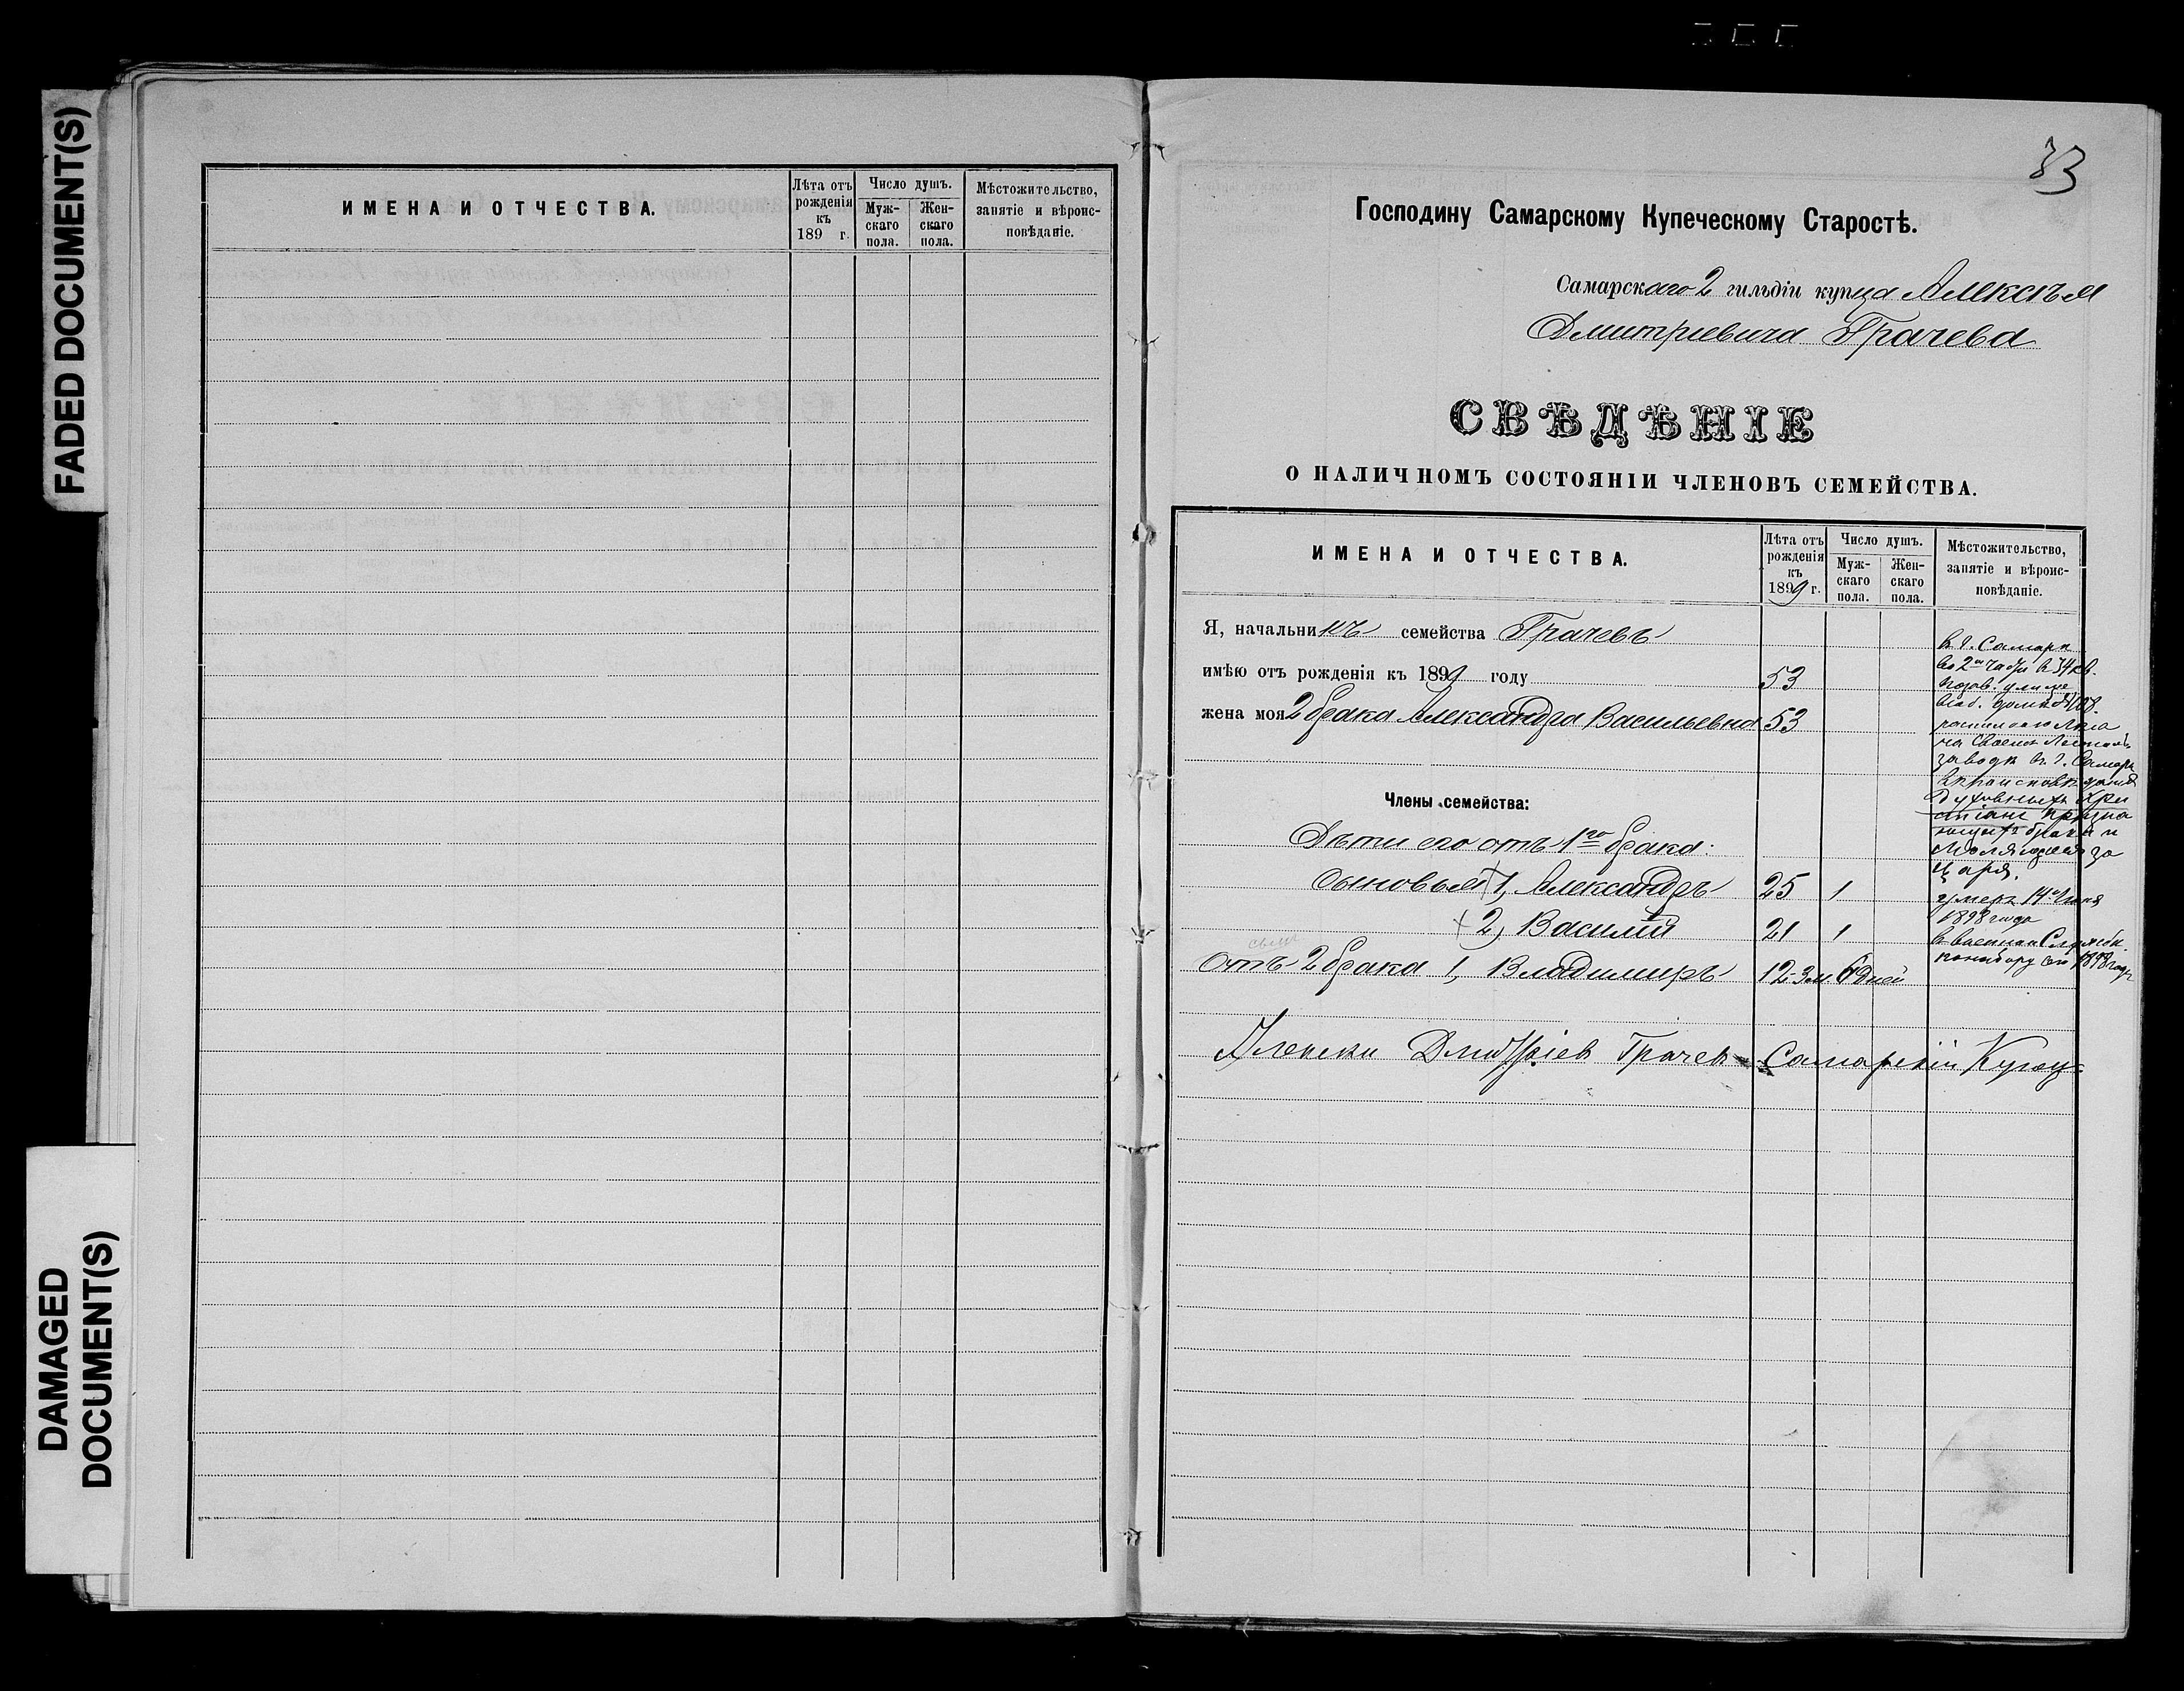 FADED DOCUMENT(S)
DAMAGED
DOCUMENT(S)
ИМЕНА И ОТЧЕСТВА.
Лѣта отъ рожденія къ 189 г.
Число душъ.
Мужскаго пола.
Женскаго пола.
Мѣстожительство, занятіе и вѣроисповѣданіе.
33
Господину Самарскому Купеческому Старостѣ.
Самарскаго 2 гильдіи купца Алексѣя
Дмитріевича Грачева
СВѢДѢНІЕ
О НАЛИЧНОМЪ СОСТОЯНІИ ЧЛЕНОВЪ СЕМЕЙСТВА.
ИМЕНА И ОТЧЕСТВА.
Лѣта отъ рожденія къ 1899 г.
Число душъ.
Мужскаго пола.
Женскаго пола.
Мѣстожительство, занятіе и вѣроисповѣданіе.
Я, начальникъ семейства Грачевъ
имѣю отъ рожденія къ 1899 году 53
жена моя 2 брака Александра Васильевна 53
в г. Самарѣ
во 2й части в 34 кв.
заводѣ в г. Самарѣ
духовныхъ хри
стіанъ призна
ющихъ бракъ и
молящихся за
Царя.
Члены семейства:
Дѣти его отъ 1го брака:
сыновья + 1, Александръ 25 1
умеръ 14 Июня
1898 года
+ 2, Василій 21 1
в военной Службѣ
по набору 1898 года
Отъ 2 брака 1, Владимиръ 12-3м 6 дней
Алексѣи Дмитріев Грачев Самарскій Купец